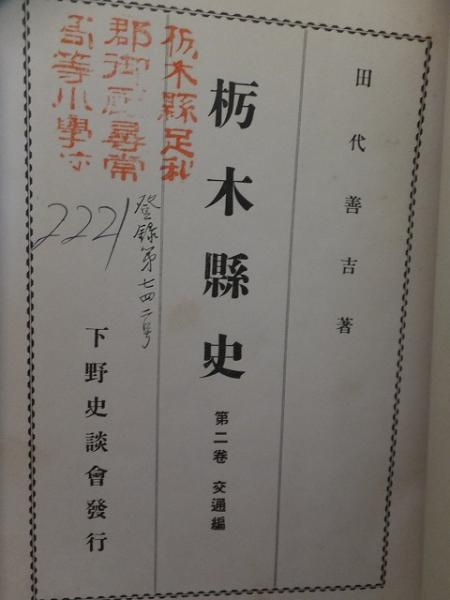 田代善吉著
栃木縣史 第二卷 交通編
下野史談會發行
栃木縣足利
郡御厨尋常
高等小學校
登錄第七四二号
2221